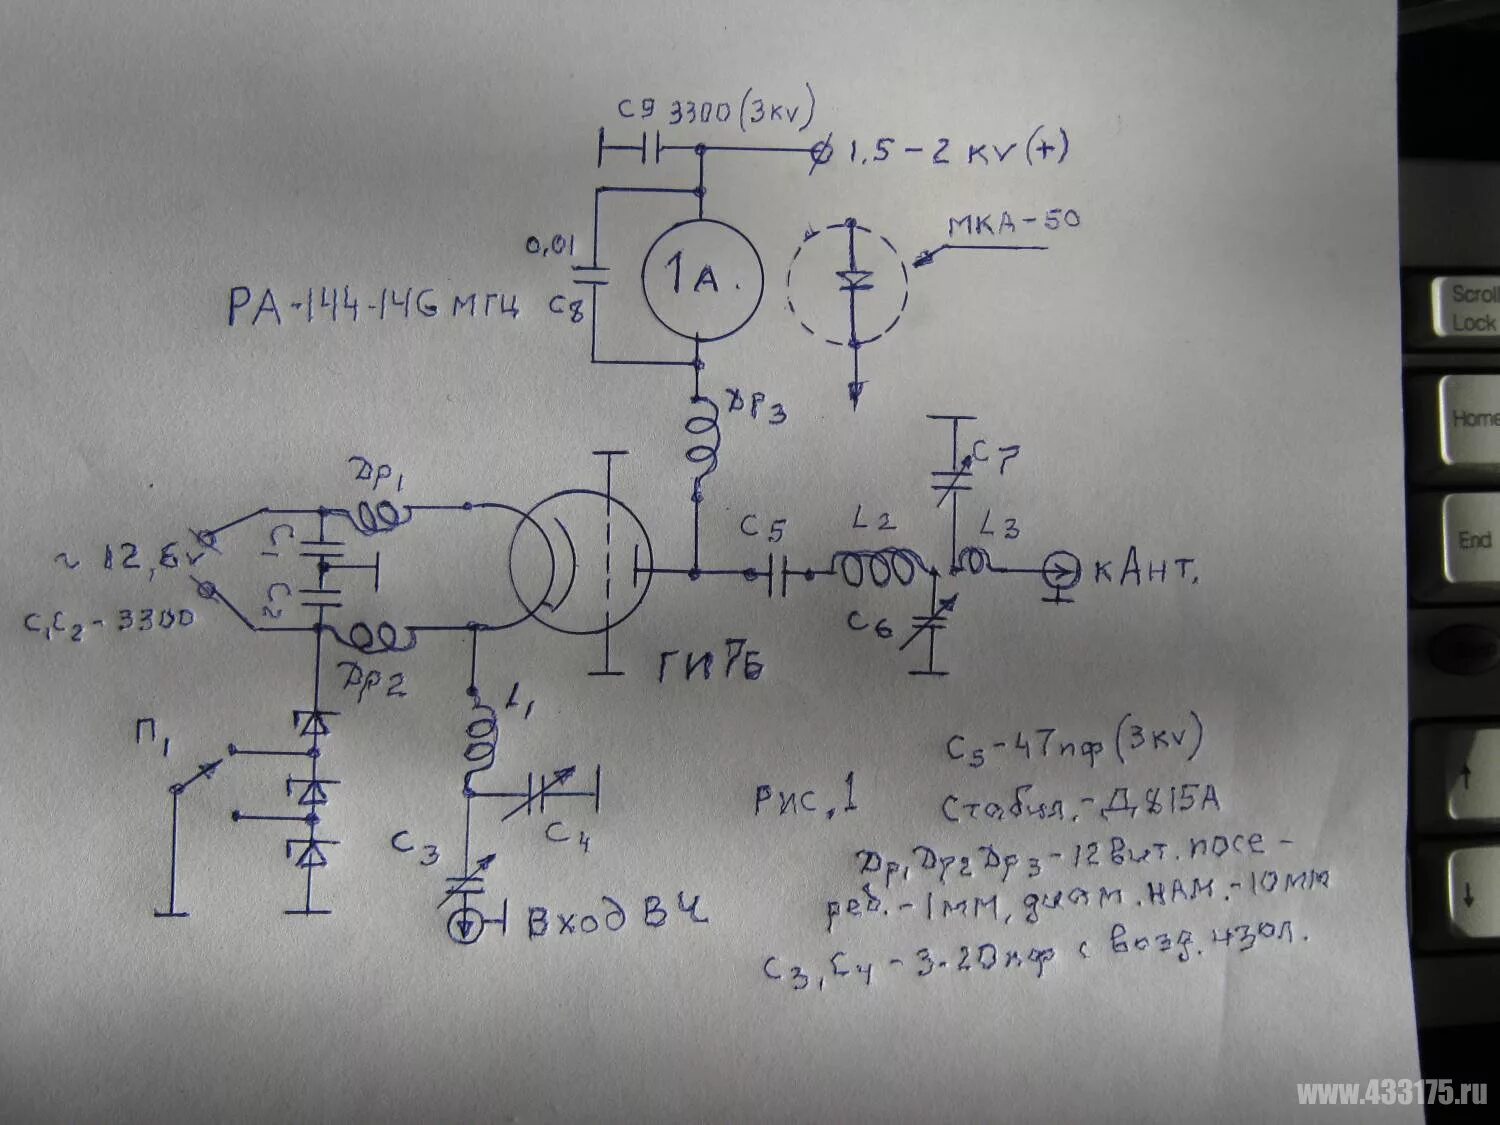 C9 3300 (3KV)
1,5-2 KV (+)
МКА-50
0,01
C8
1А.
РА-144-146 МГЦ
Др3
C7
Др1
C5
L2
L3
C1
~12,6V
кАнт.
C2
C1C2-3300
C6
ГИ7Б
Др2
L1
П1
C5-47пф (3KV)
Рис.1
Стабил.-Д815А
C4
C3
Др1 Др2 Др3-12вит. посе-
реб.-1мм, диам. нам.-10мм
Вход ВЧ
C3, C4-3-20пф с возд. изол.
Scroll
Lock
Home
End
www.433175.ru